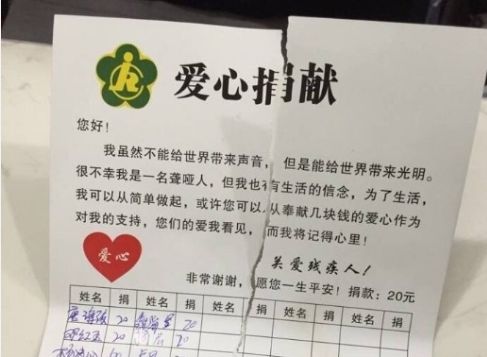 爱心捐献
您好!
我虽然不能给世界带来声音,但是能给世界带来光明。
很不幸我是一名聋哑人,但我也有生活的信念,为了生活,
我可以从简单做起,或许您可以从奉献几块钱的爱心作为
对我的支持,您们的爱我看见,而我将记得心里!
爱心
关爱残疾人!
非常谢谢,愿您一生平安!捐款:20元
姓名 捐 姓名 捐 姓名 捐 姓名 捐
20 20
20 20